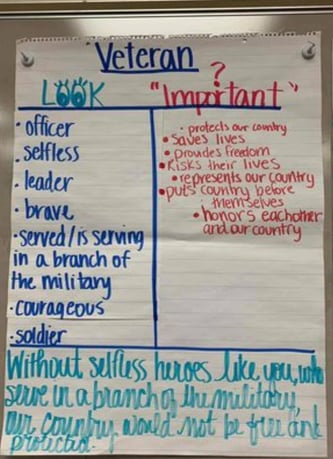 Veteran
?
LOOK
"Important"
· officer
· selfless
· leader
· brave
· served/is serving
in a branch of
the military
· courageous
· soldier
· protects our country
• saves lives
• provides freedom
• Risks their lives
• represents our country
• puts country before
themselves
• honors eachother
and our country
Without selfless heroes like you, who
serve in a branch of the military,
our country would not be free and
protected.